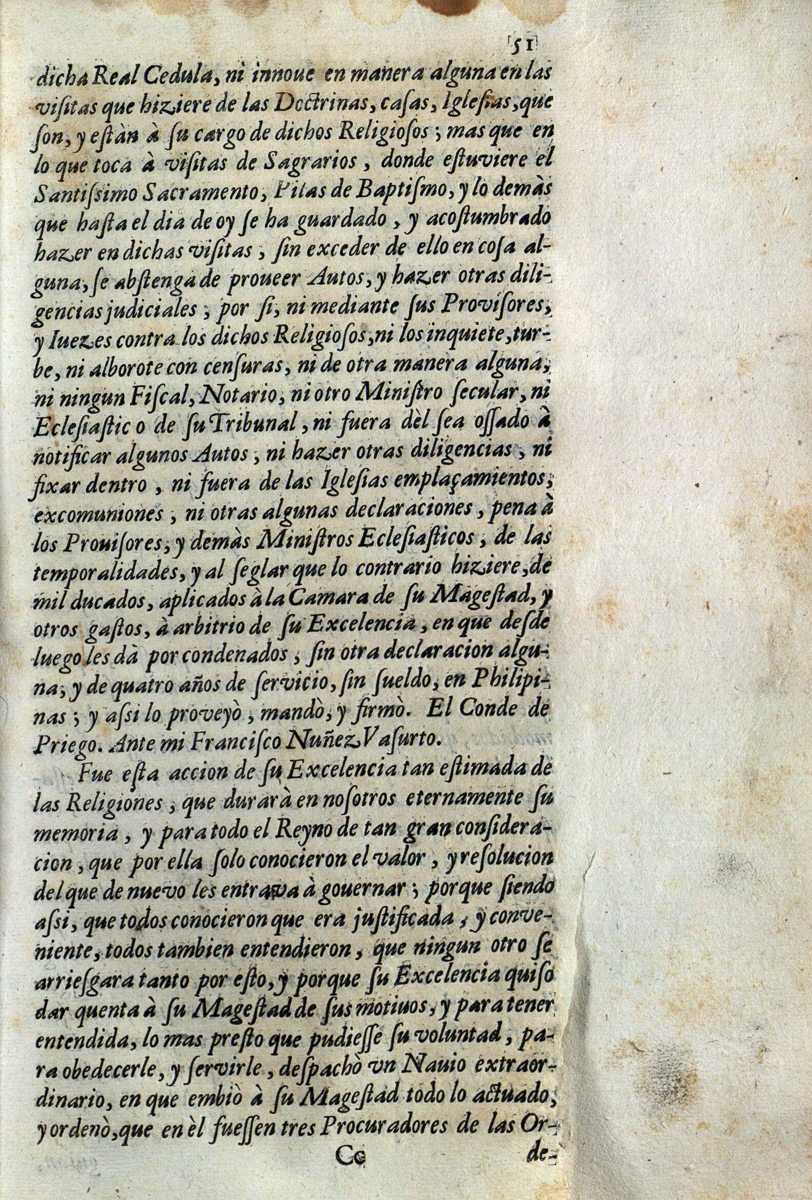 [51]
dicha Real Cedula, ni innoue en manera alguna en las
viſitas que hiziere de las Doctrinas, caſas, Igleſias, que
ſon, y eſtàn à ſu cargo de dichos Religioſos; mas que en
lo que toca à viſitas de Sagrarios, donde eſtuviere el
Santiſsimo Sacramento, Pilas de Baptiſmo, y lo demàs
que haſta el dia de oy ſe ha guardado, y acoſtumbrado
hazer en dichas viſitas, ſin exceder de ello en coſa al-
guna, ſe abſtenga de proueer Autos, y hazer otras dili-
gencias judiciales, por ſi, ni mediante ſus Proviſores,
y Iuezes contra los dichos Religioſos, ni los inquiete, tur-
be, ni alborote con cenſuras, ni de otra manera alguna,
ni ningun Fiſcal, Notario, ni otro Miniſtro ſecular, ni
Ecleſiaſtico de ſu Tribunal, ni fuera dèl ſea oſſado à
notificar algunos Autos, ni hazer otras diligencias, ni
fixar dentro, ni fuera de las Igleſias emplaçamientos,
excomuniones, ni otras algunas declaraciones, pena à
los Prouiſores, y demàs Miniſtros Ecleſiaſticos, de las
temporalidades, y al ſeglar que lo contrario hiziere, de
mil ducados, aplicados à la Camara de ſu Mageſtad, y
otros gaſtos, à arbitrio de ſu Excelencia, en que deſde
luego les dà por condenados, ſin otra declaracion algu-
na, y de quatro años de ſervicio, ſin ſueldo, en Philipi-
nas; y aſsi lo proveyò, mandò, y firmò. El Conde de
Priego. Ante mi Franciſco Nuñez Vaſurto.
Fue eſta accion de ſu Excelencia tan eſtimada de
las Religiones, que durarà en noſotros eternamente ſu
memoria, y para todo el Reyno de tan gran conſidera-
cion, que por ella ſolo conocieron el valor, y reſolucion
del que de nuevo les entrava à gouernar; porque ſiendo
aſsi, que todos conocieron que era juſtificada, y conve-
niente, todos tambien entendieron, que ningun otro ſe
arrieſgara tanto por eſto, y porque ſu Excelencia quiſo
dar quenta à ſu Mageſtad de ſus motiuos, y para tener
entendida, lo mas preſto que pudieſſe ſu voluntad, pa-
ra obedecerle, y ſervirle, deſpachò vn Nauio extraor-
dinario, en que embiò à ſu Mageſtad todo lo actuado,
y ordenò, que en èl fueſſen tres Procuradores de las Or-
Cc
de-